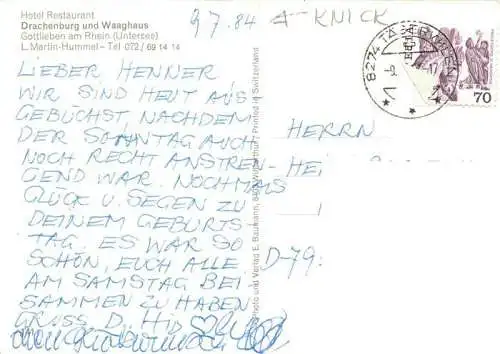 Hotel Restaurant
Drachenburg und Waaghaus
Gottlieben am Rhein (Untersee)
L. Martin-Hummel - Tel 072 / 69 14 14
9 7. 84 A - KNICK
LIEBER HENNER
WIR SIND HEUT AUS-
GEBÜCHST, NACHDEM
DER SONNTAG AUCH
NOCH RECHT ANSTREN-
GEND WAR. NOCHMALS
GLÜCK U. SEGEN ZU
DEINEM GEBURTS-
TAG. ES WAR SO
SCHÖN, EUCH ALLE
AM SAMSTAG BEI-
SAMMEN ZU HABEN
GRUSS D.
Photo und Verlag E. Baumann, 8400 Winterthur Printed in Switzerland
8274
70
HERRN
D-79